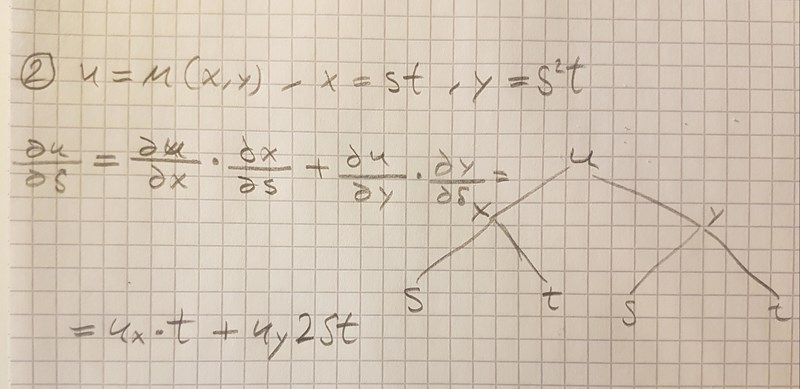 ② u = u(x,y), x = st, y = s²t
∂u/∂s = ∂u/∂x · ∂x/∂s + ∂u/∂y · ∂y/∂s =
u
x y
s t s t
= uₓ · t + u_y 2st